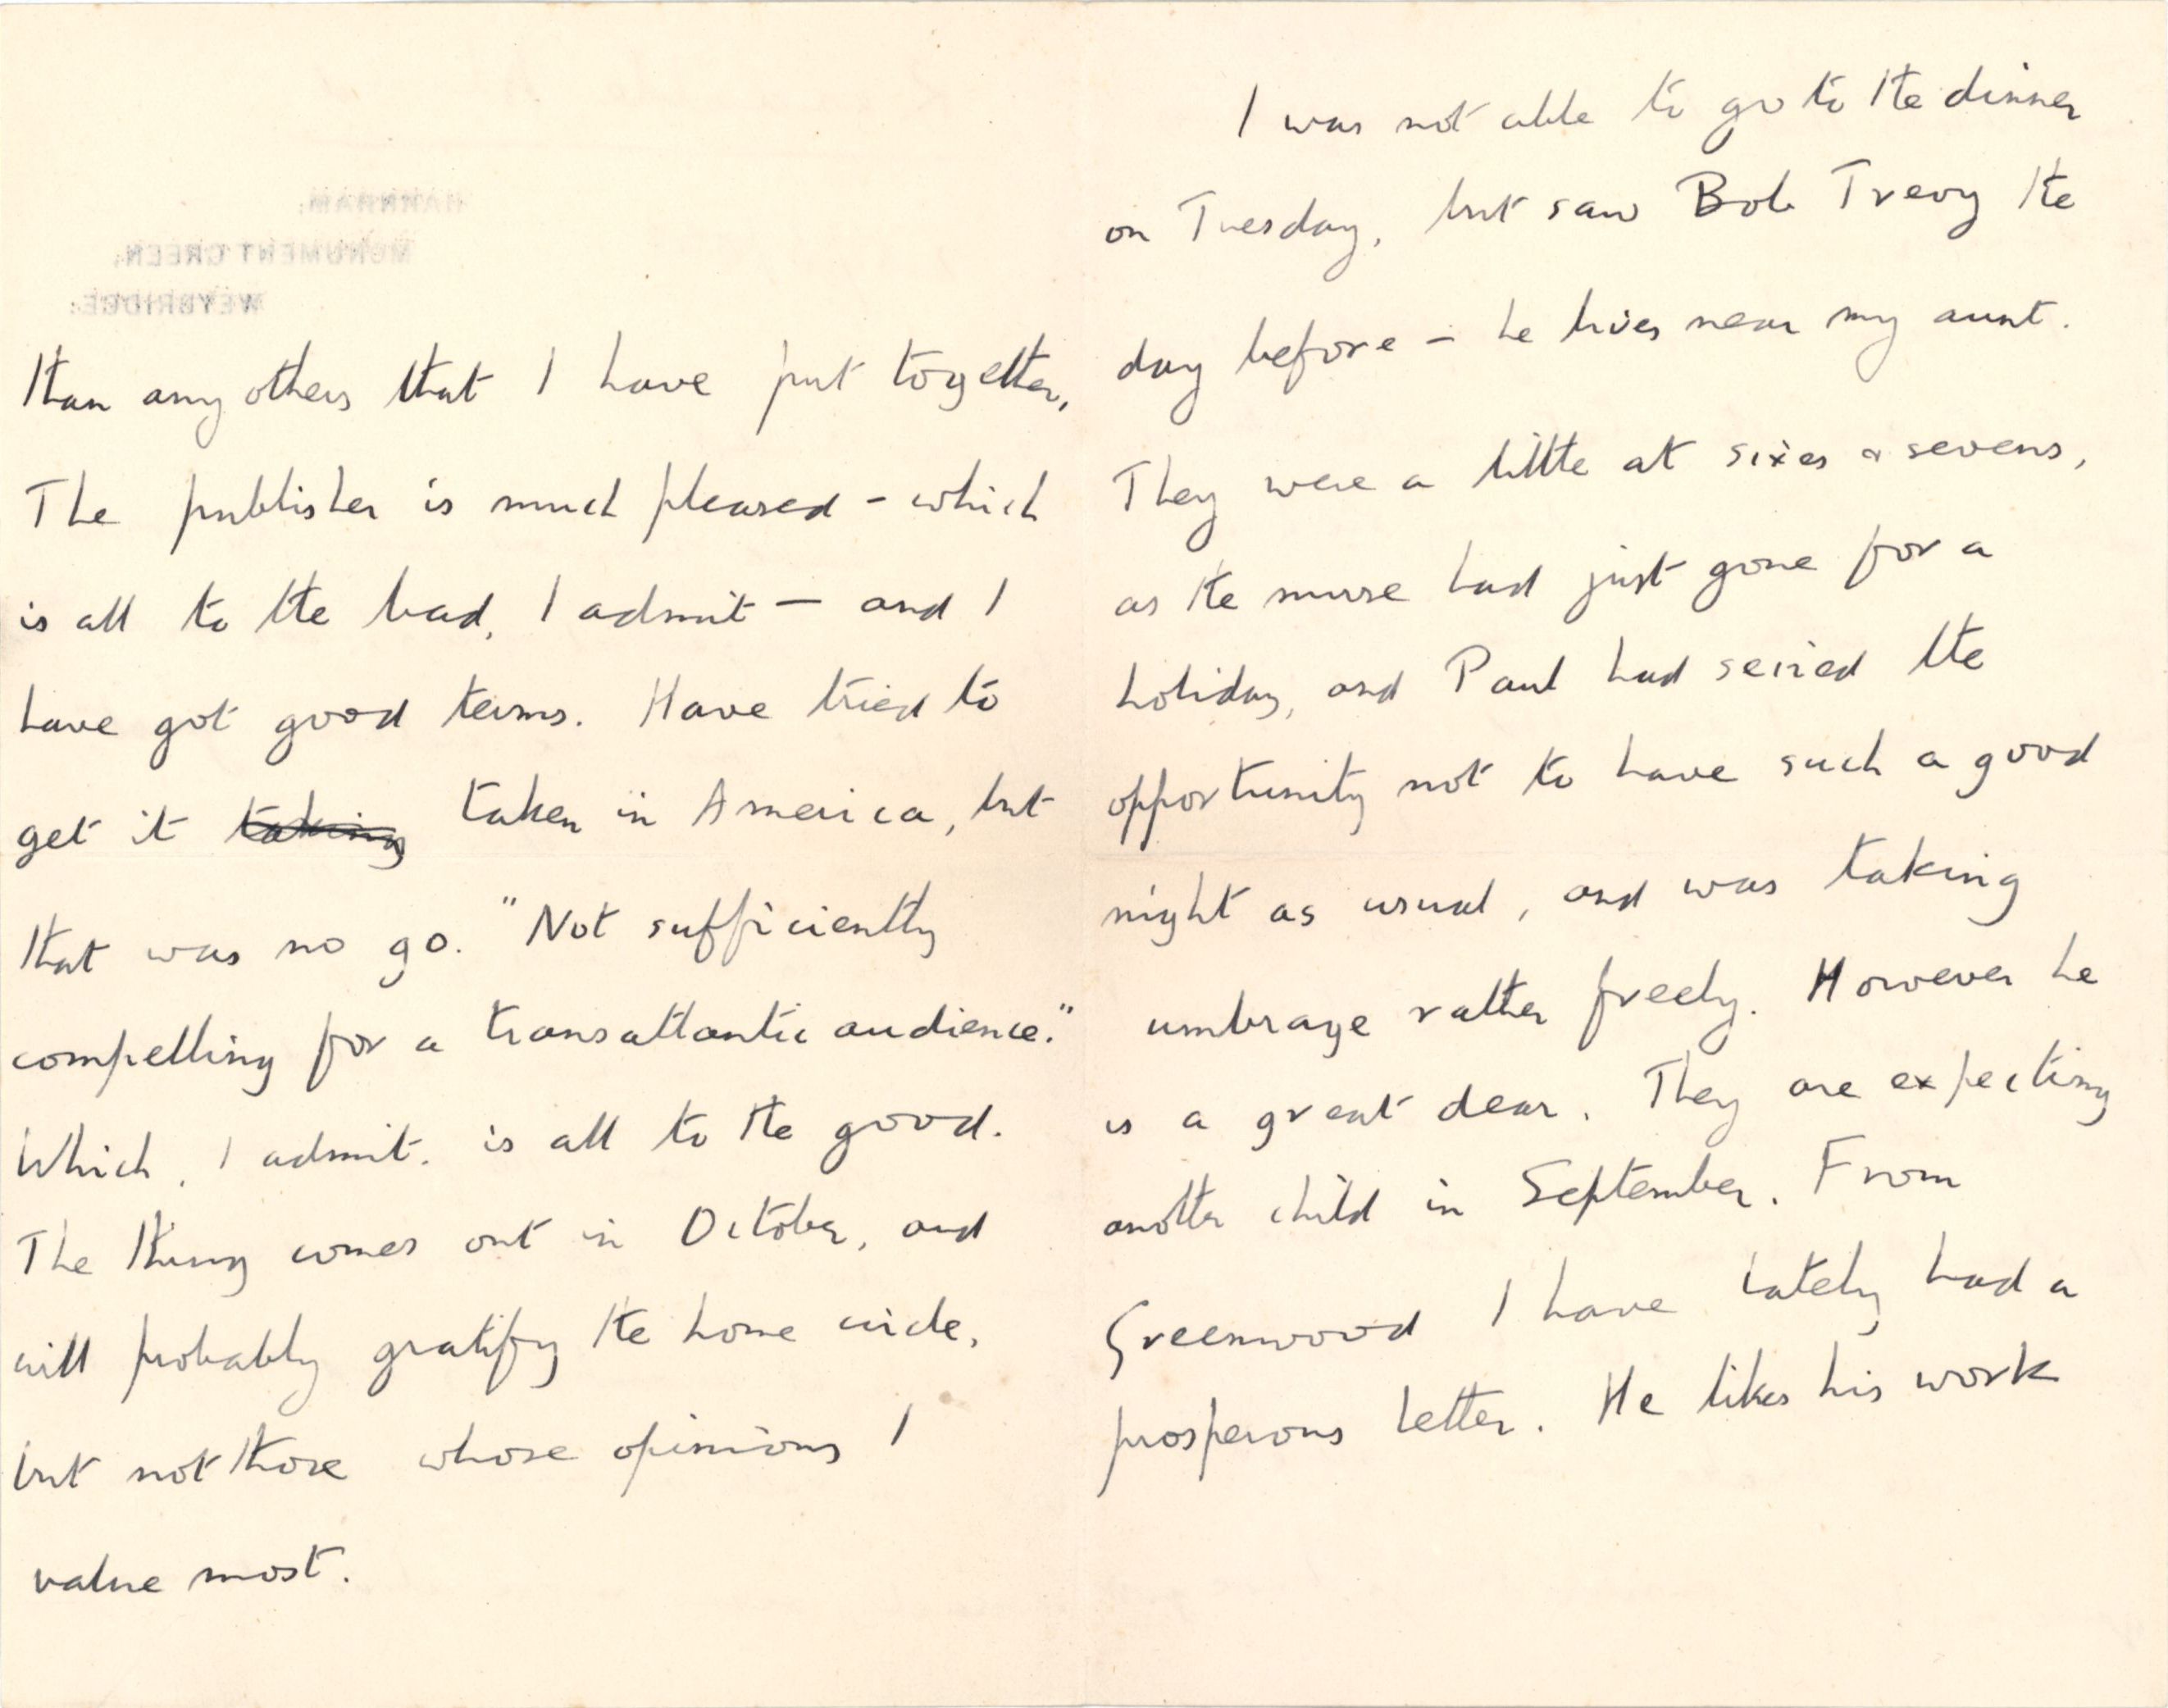 HARNHAM,
MONUMENT GREEN,
WEYBRIDGE.
than any others that I have put together,
The publisher is much pleased – which
is all to the bad, I admit – and I
have got good terms. Have tried to
get it taking taken in America, but
that was no go. "Not sufficiently
compelling for a transatlantic audience."
Which, I admit, is all to the good.
The thing comes out in October, and
will probably gratify the home circle,
but not those whose opinions I
value most.
I was not able to go to the dinner
on Tuesday, but saw Bob Trevy the
day before – he lives near my aunt.
They were a little at sixes & sevens,
as the nurse had just gone for a
holiday, and Paul had seized the
opportunity not to have such a good
night as usual, and was taking
umbrage rather freely. However he
is a great dear. They are expecting
another child in September. From
Greenwood I have lately had a
prosperous letter. He likes his work